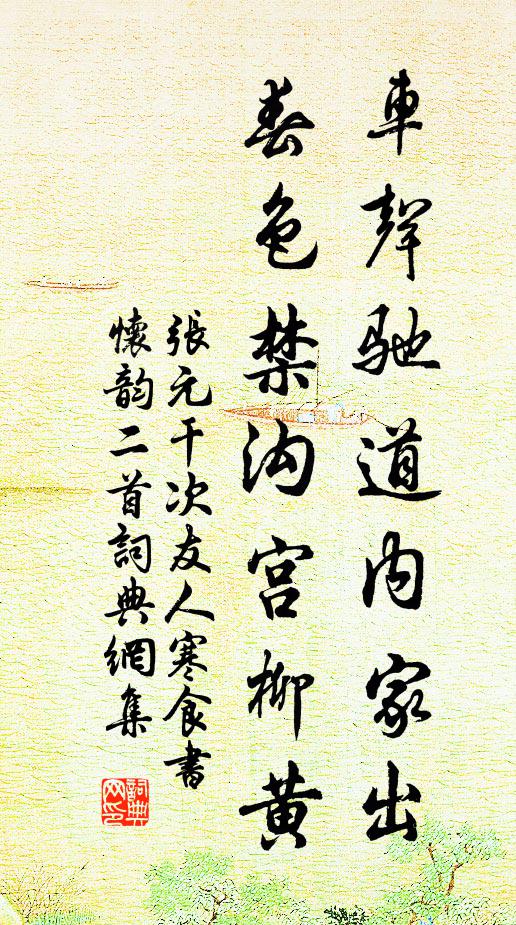 車聲馳道內家出
春色禁溝宮柳黃
張元干次友人寒食書
懷韵二首詞典網集
詞典
网印